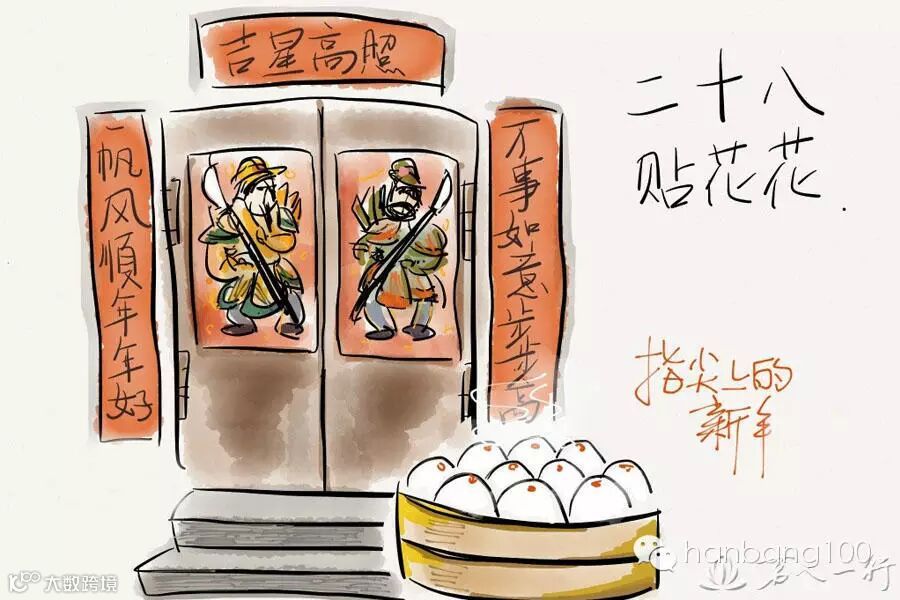 吉星高照
一帆风順年年好
万事如意步步高
二十八
贴花花.
指尖上的
新年
hanbang100
大数跨境